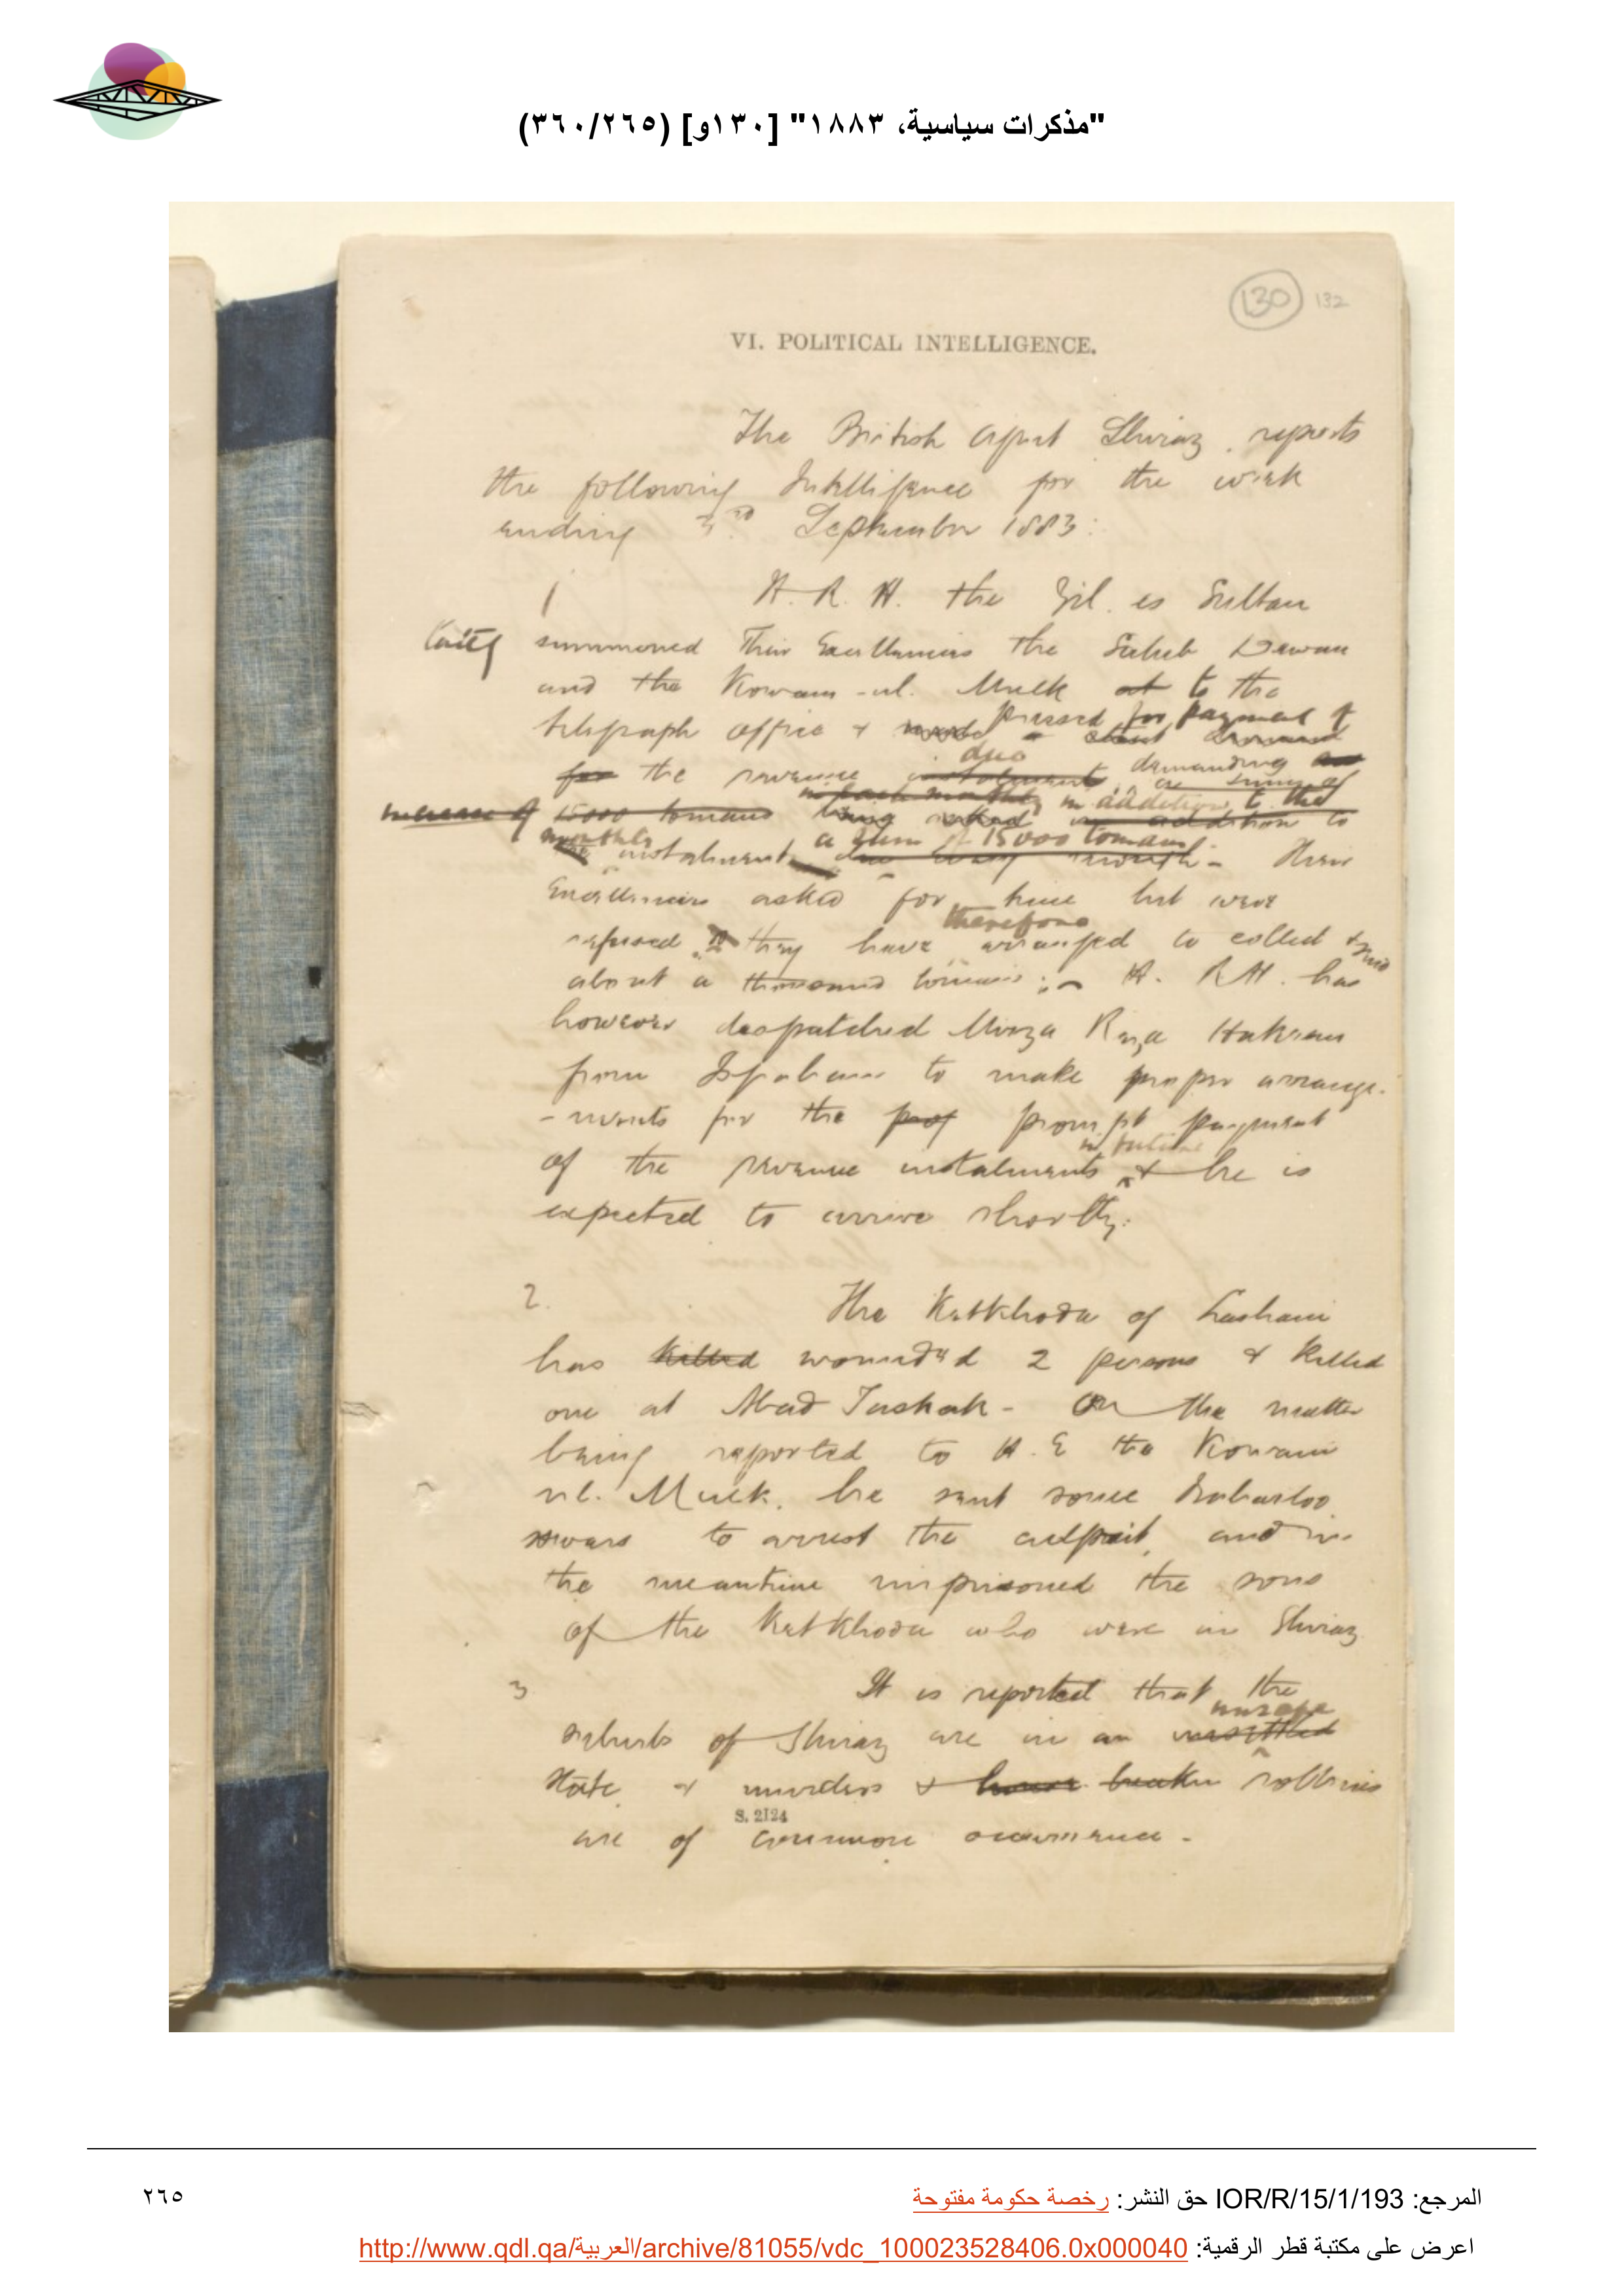 "مذكرات سياسية، ١٨٨٣" [١٣٠و] (٣٦٠/٢٦٥)
130 132
VI. POLITICAL INTELLIGENCE.
The British Agent Shiraz reports
the following Intelligence for the week
ending 3rd September 1883:
1 H. R. H. the Zil. es Sultan
lately summoned Their Excellencies the Sahib Dewan
and the Kowam-ul. Mulk at to the
pressed for payment of
telegraph office &
due demanding
for the revenue instalment
in addition to the
increase of 15000 tomans being asked in addition to
monthly a sum of 15000 tomans.
the instalment due every month - Their
Excellencies asked for time but were
therefore
refused. they have arranged to collect & send
about a thousand tomans; H. R. H. has
however despatched Mirza Riza Hakeem
from Ispahan to make proper arrange-
-ments for the prompt payment
in future
of the revenue instalments & he is
expected to arrive shortly.
2. The Ketkhoda of Lashani
has killed wounded 2 persons & killed
one at Abad Tashak - On the matter
being reported to H. E the Kowam
ul. Mulk, he sent some
sowars to arrest the culprit, and in
the meantime imprisoned the sons
of the Ketkhoda who were in Shiraz
3 It is reported that the
unsafe
suburbs of Shiraz are in an unsettled
state & murders & house breaking robberies
S. 2124
are of common occurrence -
المرجع: IOR/R/15/1/193 حق النشر: رخصة حكومة مفتوحة
٢٦٥
اعرض على مكتبة قطر الرقمية: http://www.qdl.qa/العربية/archive/81055/vdc_100023528406.0x000040